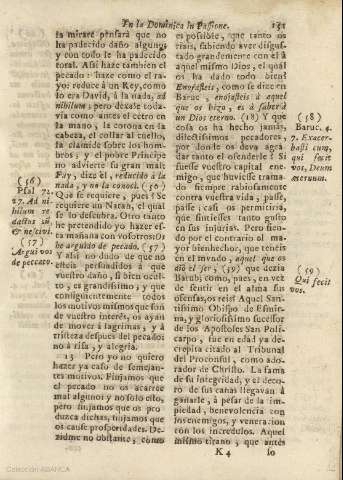 En la Dominica in Passione. 151
la mirare pensarà que no
ha padecido daño alguno,
y con todo le ha padecido
total. Assi haze tambien el
pecado: haze como el ra-
yo: reduce à un Rey, como
lo era David, à la nada, ad
nihilum; pero dexale toda-
via como antes el cetro en
la mano, la corona en la
cabeza, el collar al cuello,
la clamide sobre los hom-
bros; y el pobre Principe
no advierte su gran mal:
Fay, dize èl, reducido à la
nada, y no la conocì. (56)
Què se requiere, pues? Se
requiere un Natan, el qual
se lo descubra. Otro tanto
he pretendido yo hazer es-
ta mañana con vosotros: Os
he arguido de pecado. (57)
Y assi no dudo de que no
esteis persuadidos à que
vuestro daño, si bien ocul-
to, es grandissimo; y que
consiguientemente todos
los motivos mismos que son
de vuestro interès, os ayan
de mover à lagrimas, y à
tristeza despues del pecado:
no à risa, y alegria.
13 Pero yo no quiero
hazer ya caso de semejan-
tes motivos. Finjamos que
el pecado no os acarree
mal alguno: y no solo esto,
pero finjamos que os pro-
duzca dichas, finjamos que
os cause prosperidades. De-
zidme no obstante, como
(56)
Psal. 72.
27. Ad ni-
hilum re-
dactus sũ,
& nescivi.
(57)
Argui vos
de peccato.
es possible, que tanto os
riais, sabiendo aver disgus-
tado grandemente con èl à
aquel mismo Dios, el qual
os ha dado todo bien?
Enojasteis, como se dize en
Baruc, enojasteis à aquel
que os hizo, es à saber à
un Dios eterno. (58) Y que
cosa os ha hecho jamàs,
dilectissimos pecadores,
por donde os deva agra-
dar tanto el ofenderle? Si
fuesse vuestro capital ene-
migo, que huviesse trama-
do siempre rabiosamente
contra vuestra vida, passe,
passe; casi os permitiria,
que sintiesses tanto gusto
en sus injurias. Pero sien-
do por el contrario el ma-
yor bienhechor, que teneis
en el mundo, aquel que os
diò el ser, (59) que dezia
Baruh; como, pues, en vez
de sentir en el alma sus
ofensas, os reis? Aquel San-
tissimo Obispo de Esmir-
na, y gloriosissimo sucessor
de los Apostoles San Poli-
carpo, fue en edad ya de-
crepita citado al Tribunal
del Proconsul, como ado-
rador de Christo. La fama
de su integridad, y el deco-
ro de sus canas llegavan à
ganarle, à pesar de la im-
piedad, benevolencia con
los enemigos, y veneracion
con los incredulos. Aquel
mismo tirano, que antes
K 4 lo
(58)
Baruc. 4.
7. Exacer-
basti eum,
qui fecit
vos, Deum
æternum.
(59)
Qui fecit
vos.
Colección ABANCA